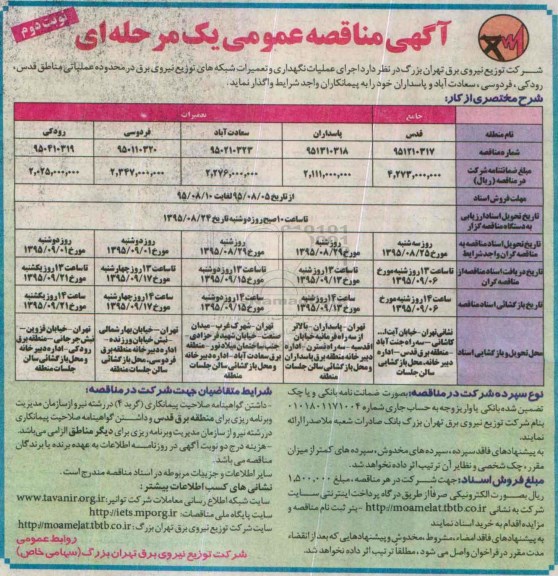 نوبت دوم
آگهی مناقصه عمومی یک مرحله ای
شرکت توزیع نیروی برق تهران بزرگ در نظر دارد اجرای عملیات نگهداری و تعمیرات شبکه های توزیع نیروی برق در محدوده عملیاتی مناطق قدس،
رودکی، فردوسی، سعادت آباد و پاسداران خود را به پیمانکاران واجد شرایط واگذار نماید.
شرح مختصری از کار:
جامع تعمیرات
نام منطقه قدس پاسداران سعادت آباد فردوسی رودکی
شماره مناقصه ۹۵۱۲۱۰۳۱۷ ۹۵۱۳۱۰۳۱۸ ۹۵۰۲۱۰۳۲۳ ۹۵۰۱۱۰۳۲۰ ۹۵۰۴۱۰۳۱۹
مبلغ ضمانتنامه شرکت در مناقصه (ریال) ۴,۲۷۳,۰۰۰,۰۰۰ ۲,۱۱۱,۰۰۰,۰۰۰ ۲,۲۷۶,۰۰۰,۰۰۰ ۲,۳۴۷,۰۰۰,۰۰۰ ۲,۰۲۵,۰۰۰,۰۰۰
مهلت فروش اسناد از تاریخ ۹۵/۰۸/۰۵ لغایت ۹۵/۰۸/۱۰
تاریخ تحویل اسناد ارزیابی به دستگاه مناقصه گزار تا ساعت ۱۰ صبح روز دوشنبه تاریخ ۱۳۹۵/۰۸/۲۴
تاریخ تحویل اسناد مناقصه به مناقصه گران واجد شرایط روز سه شنبه مورخ ۱۳۹۵/۰۸/۲۵ روز شنبه مورخ ۱۳۹۵/۰۸/۲۹ روز شنبه مورخ ۱۳۹۵/۰۸/۲۹ روز دوشنبه مورخ ۱۳۹۵/۰۹/۰۱ روز دوشنبه مورخ ۱۳۹۵/۰۹/۰۱
تاریخ دریافت اسناد مناقصه از مناقصه گران تا ساعت ۱۳ روز شنبه مورخ ۱۳۹۵/۰۹/۰۶ تا ساعت ۱۳ روز شنبه مورخ ۱۳۹۵/۰۹/۱۳ تا ساعت ۱۳ روز دوشنبه مورخ ۱۳۹۵/۰۹/۱۵ تا ساعت ۱۳ روز چهارشنبه مورخ ۱۳۹۵/۰۹/۱۷ تا ساعت ۱۳ روز یکشنبه مورخ ۱۳۹۵/۰۹/۲۱
تاریخ بازگشائی اسناد مناقصه ساعت ۱۴ روز شنبه مورخ ۱۳۹۵/۰۹/۰۶ ساعت ۱۴ روز شنبه مورخ ۱۳۹۵/۰۹/۱۳ ساعت ۱۴ روز دوشنبه مورخ ۱۳۹۵/۰۹/۱۵ ساعت ۱۴ روز چهارشنبه مورخ ۱۳۹۵/۰۹/۱۷ ساعت ۱۴ روز یکشنبه مورخ ۱۳۹۵/۰۹/۲۱
محل تحویل و بازگشایی اسناد نشانی تهران - خیابان آیت ا... کاشانی - سه راه جنت آباد - منطقه برق قدس - اداره دبیرخانه، محل بازگشایی سالن جلسات تهران - پاسداران - بالاتر از سه راه فرمانیه خیابان اقدسیه - سه راه نسترن - اداره دبیرخانه منطقه برق پاسداران و محل بازگشایی سالن جلسات منطقه تهران - شهرک غرب - میدان صنعت - خیابان شهید فرحزادی - جنب ساختمان میلاد نور - منطقه برق سعادت آباد - اداره دبیرخانه و محل بازگشائی سالن جلسات منطقه تهران - خیابان بهار شمالی - نبش خیابان ورزنده - اداره دبیرخانه منطقه برق فردوسی، محل بازگشائی سالن جلسات منطقه تهران - خیابان قزوین - نبش جرجانی - منطقه برق رودکی - اداره دبیرخانه و محل بازگشائی سالن جلسات منطقه
نوع سپرده شرکت در مناقصه: بصورت ضمانت نامه بانکی و یا چک
تضمین شده بانکی یا واریز وجه به حساب جاری شماره ۰۱۰۱۸۰۱۱۷۱۰۰۴
بنام شرکت توزیع نیروی برق تهران بزرگ بانک صادرات شعبه ملاصدرا ارائه
گردد.
به پیشنهادهای فاقد سپرده، سپرده های مخدوش، سپرده های کمتر از میزان
مقرر، چک شخصی و نظایر آن ترتیب اثر داده نخواهد شد.
مبلغ فروش اسناد: جهت شرکت در هر مناقصه، مبلغ ۱,۵۰۰,۰۰۰
ریال بصورت الکترونیکی صرفاً از طریق درگاه پرداخت اینترنتی سایت
شرکت به نشانی http://moamelat.tbtb.co.ir - تیتر ثبت نام مناقصه و
مزایده اقدام به خرید اسناد نمایند
به پیشنهادهای فاقد امضاء، مشروط، مخدوش و پیشنهادهایی که بعد از انقضاء
مدت مقرر در فراخوان واصل می شود، مطلقاً ترتیب اثر داده نخواهد شد.
شرایط متقاضیان جهت شرکت در مناقصه:
- داشتن گواهینامه صلاحیت پیمانکاری (گرید ۴) در رشته نیرو از سازمان مدیریت
وبرنامه ریزی برای منطقه برق قدس و داشتن گواهینامه صلاحیت پیمانکاری
در رشته نیرو از سازمان مدیریت وبرنامه ریزی برای دیگر مناطق الزامی می‌باشد.
- هزینه درج دو نوبت آگهی در روزنامه اطلاعات به عهده برنده یا برندگان
مناقصه می باشد.
سایر اطلاعات و جزییات مربوطه در اسناد مناقصه مندرج است.
نشانی های کسب اطلاعات بیشتر:
سایت شبکه اطلاع رسانی معاملات شرکت توانیر: www.tavanir.org.ir
سایت پایگاه ملی مناقصات: http://iets.mporg.ir
سایت شرکت توزیع نیروی برق تهران بزرگ: http://moamelat.tbtb.co.ir
روابط عمومی
شرکت توزیع نیروی برق تهران بزرگ (سهامی خاص)